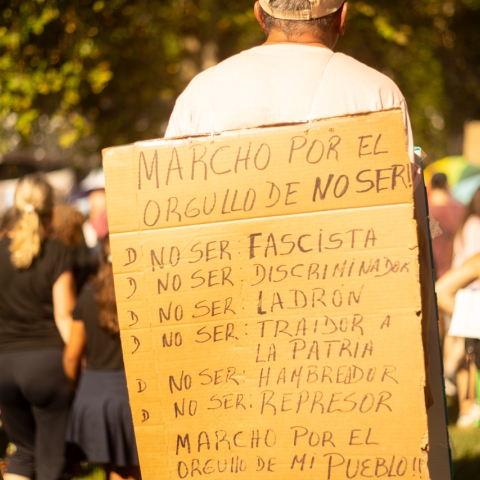 MARCHO POR EL
ORGULLO DE NO SER!
D NO SER: FASCISTA
D NO SER: DISCRIMINADOR
D NO SER: LADRON
D NO SER: TRAIDOR A
LA PATRIA
D NO SER: HAMBREADOR
D NO SER: REPRESOR
MARCHO POR EL
ORGULLO DE MI PUEBLO!!